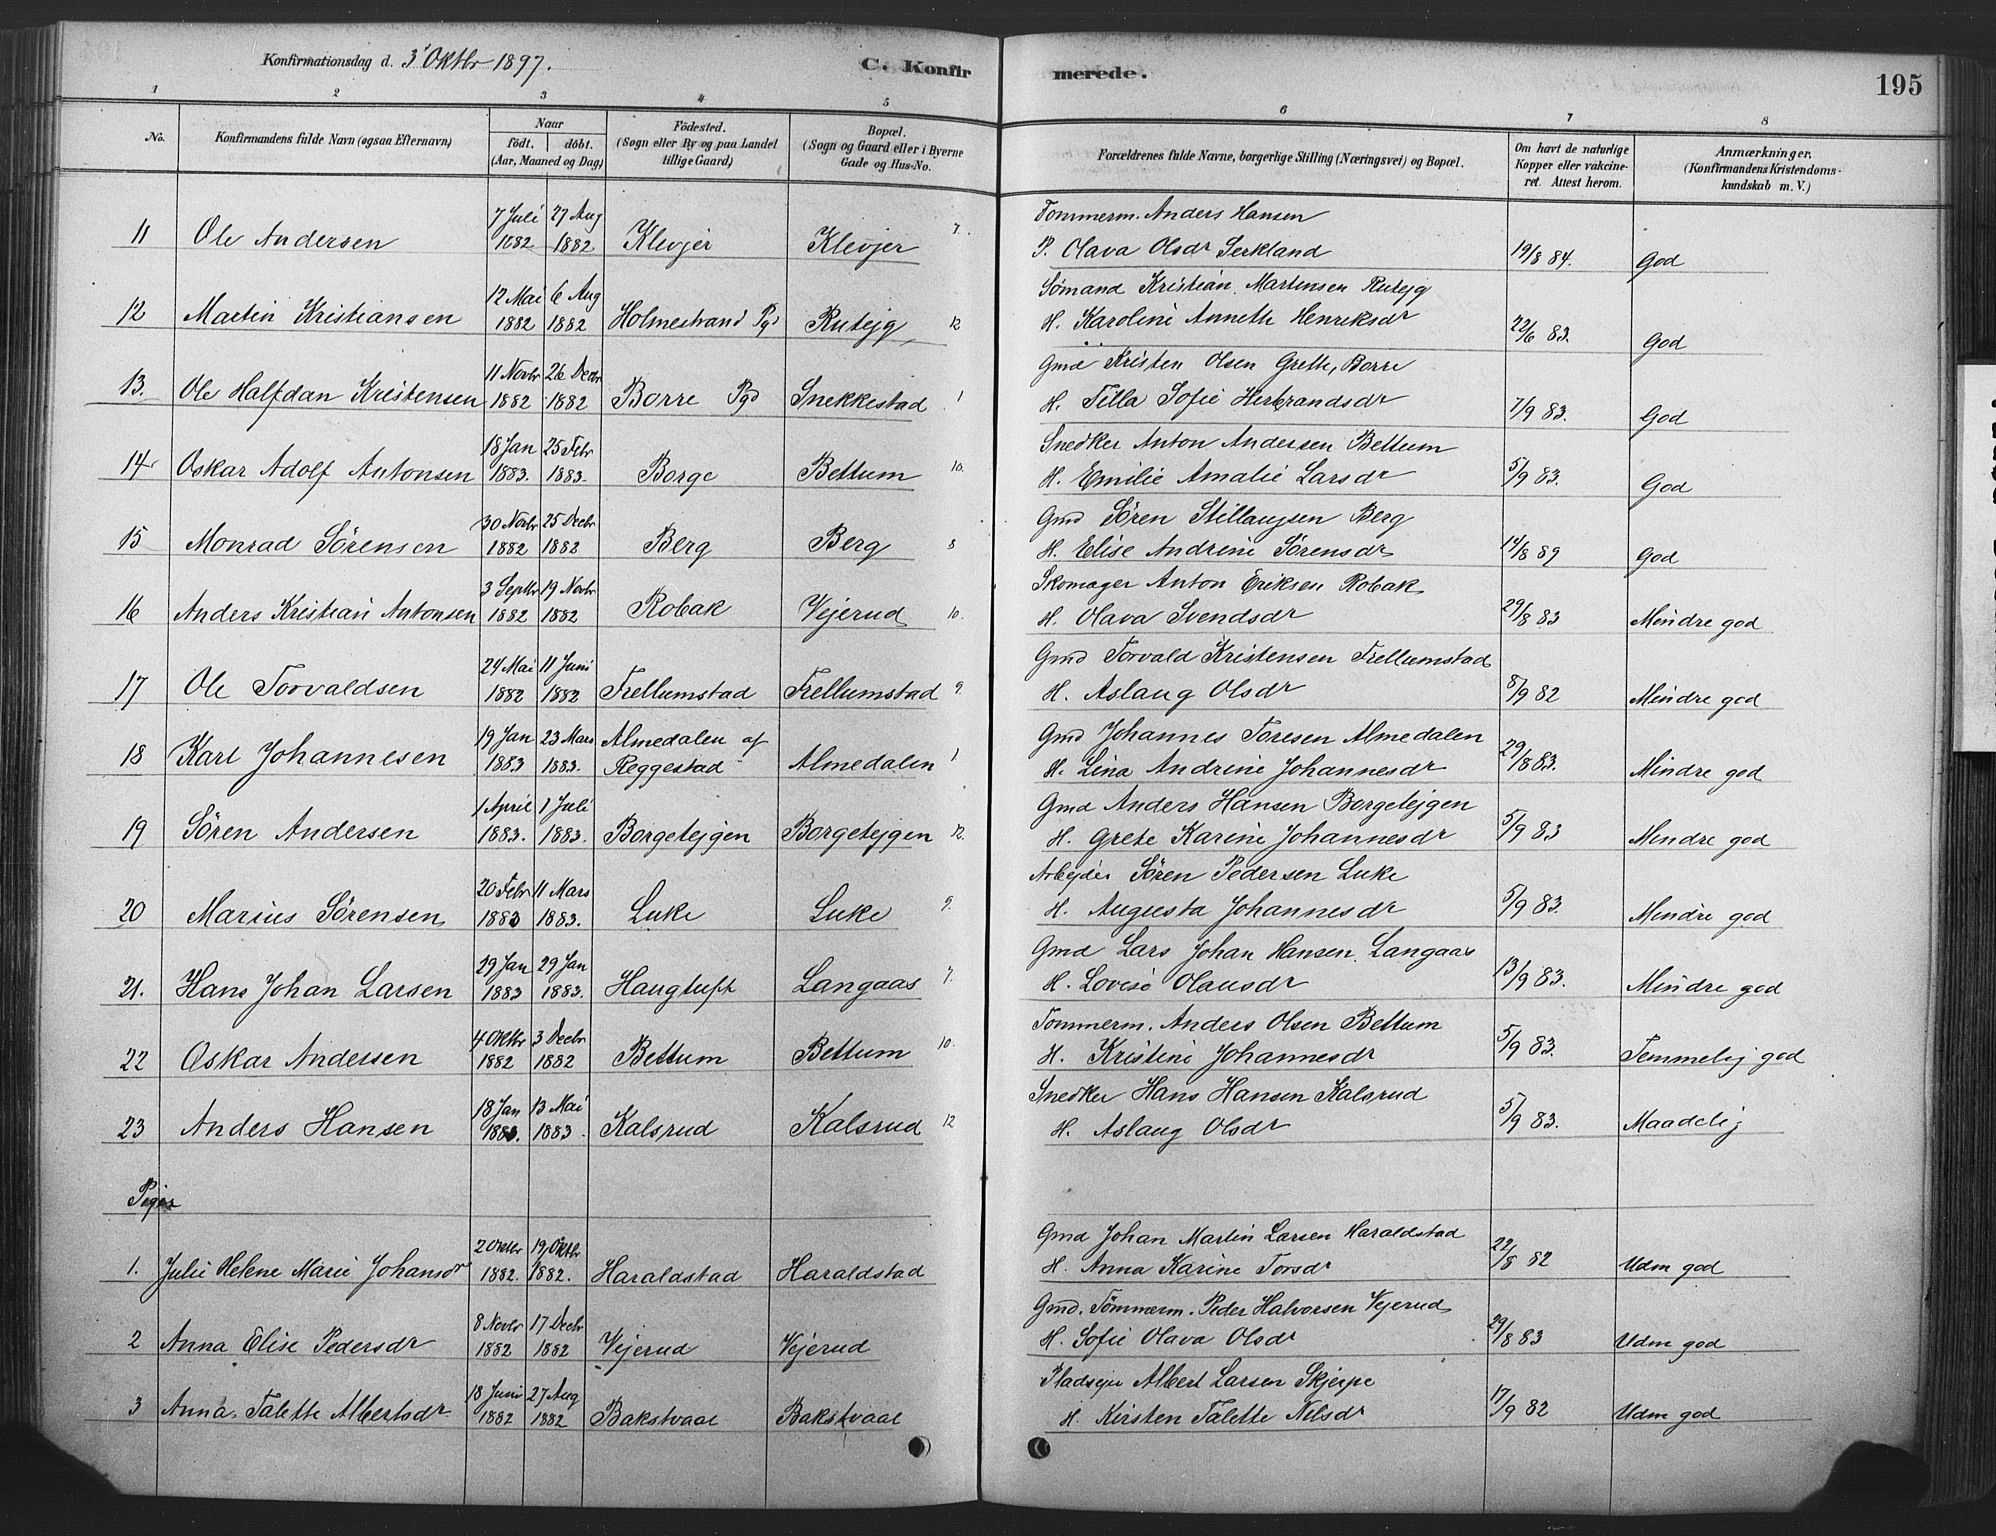 Konfirmationsdag d. 3' Oktbr 1897.
C. Konfirmerede.
195
1 2 3 4 5 6 7 8
No.
Konfirmandens fulde Navn (ogsaa Efternavn)
Naar
födt. döbt.
(Aar, Maaned og Dag)
Födested.
(Sogn eller By og paa Landet
tillige Gaard)
Bopæl.
(Sogn og Gaard eller i Byerne
Gade og Hus-No.
Forældrenes fulde Navne, borgerlige Stilling (Næringsvei) og Bopæl.
Om havt de naturlige
Kopper eller vakcine-
ret. Attest herom.
Anmærkninger.
(Konfirmandens Kristendoms-
kundskab m. V.)
7 Juli 27 Aug 7. Tommerm. Anders Hansen
11 Ole Andersen 1882 1882 Klevjer Klevjer P. Olava Olsdr Serkland 19/8 84. God
12 Mai 6 Aug Sømand Kristian Martinsen Rutejg
12 Martin Kristiansen 1882 1882 Holmestrand Pgd Rutejg 12 H. Karolini Anneth Henriksdr 22/6 83. God
11 Novbr 26 Decbr Gmd Kristen Olsen Grette, Borre
13. Ole Halfdan Kristensen 1882 1882 Borre Pgd Snekkestad 1 H. Tilla Sofie Herbrandsdr 7/9 83. God
18 Jan 25 Febr Snedker Anton Andersen Bettum
14 Oskar Adolf Antonsen 1883. 1883. Borge Bettum 10. H. Emilie Amalie Larsdr 5/9 83. God
30 Novbr 25 Decbr Gmd Søren Stillaugsen Berg
15 Monrad Sørensen 1882 1882 Berg Berg 8 H. Elise Andrine Sørensdr 14/8 89 God
3 Septbr 19 Novbr Skomager Anton Eriksen Robak
16 Anders Kristian Antonsen 1882 1882 Robak Vejerud 10. H. Olava Svendsdr 29/8 83 Mindre god
24 Mai 11 Juni Gmd Torvald Kristensen Trellumstad
17 Ole Torvaldsen 1882 1882 Trellumstad Trellumstad 9. H. Aslaug Olsdr 8/9 82 Mindre god
19 Jan 23 Mars Almedalen af Gmd Johannes Toresen Almedalen
18 Karl Johannesen 1883 1883. Reggestad Almedalen 1 H. Lina Andrine Johannesdr 29/8 83. Mindre god
1 April 1 Juli Gmd Anders Hansen Borgetejgen
19 Søren Andersen 1883. 1883. Borgetejgen Borgetejgen 12. H. Grete Karine Johannesdr 5/9 83 Mindre god
20 Febr 11 Mars Arbejder Søren Pedersen Luke
20 Marius Sørensen 1883 1883. Luke Luke 9. H. Augusta Johannesdr 5/9 83. Mindre god
29 Jan 29 Jan Gmd Lars Johan Hansen Langaas
21. Hans Johan Larsen 1883 1883. Haugtuft Langaas 7. H. Lovise Olausdr 13/9 83. Mindre god
4 Oktbr 3 Decbr Tommerm. Anders Olsen Bettum
22 Oskar Andersen 1882 1882 Bettum Bettum 10. H. Kristine Johannesdr 5/9 83. Temmelig god
18 Jan 13 Mai Snedker Hans Hansen Kalsrud
23 Anders Hansen 1883. 1883. Kalsrud Kalsrud 12 H. Aslaug Olsdr 5/9 83. Maadelig
Piger
2 Oktbr 19 Oktbr Gmd Johan Martin Larsen Haraldstad
1. Julie Helene Marie Johansdr 1882. 1882. Haraldstad Haraldstad H. Anna Karine Torsdr 22/8 82 Udm god
8 Novbr 17 Decbr Gmd. Tømmerm. Peder Halvorsen Vejerud
2 Anna Elise Pedersdr 1882 1882 Vejerud Vejerud H. Sofie Olava Olsdr 29/8 83 Udm god
18 Juni 27 Aug Pladsejer Albert Larsen Skjerpe
3 Anna Talette Albertsdr 1882 1882 Bakstvaal Bakstvaal H. Kirsten Talette Nilsdr 17/9 82 Udm god